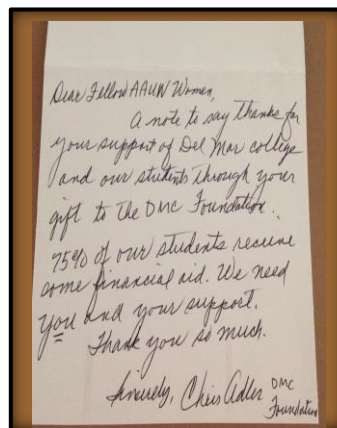 Dear Fellow AAUW Women,
A note to say thanks for
your support of Del Mar college
and our students through your
gift to the DMC Foundation.
75% of our students receive
some financial aid. We need
you and your support.
Thank you so much.
Sincerely, Chris Adler DMC
Foundation